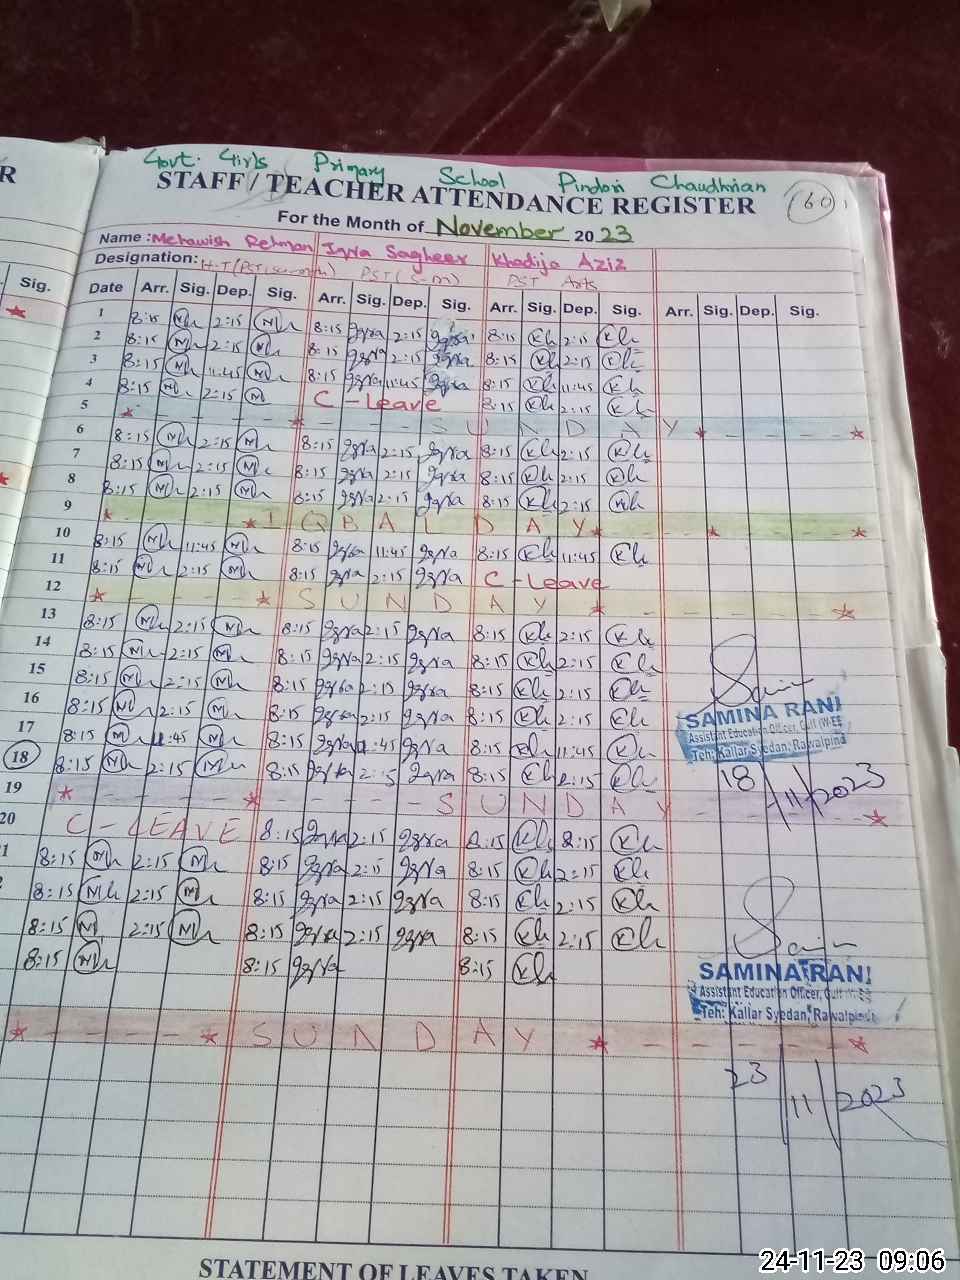 Govt. Girls Primary School Pindori Chaudhrian
STAFF / TEACHER ATTENDANCE REGISTER
60
For the Month of November 2023
R
Name : Mehawish Rehman Iqra Sagheer Khadija Aziz
Designation: H-T (PST) PST (S-M) PST Arts
Sig. Date Arr. Sig. Dep. Sig. Arr. Sig. Dep. Sig. Arr. Sig. Dep. Sig. Arr. Sig. Dep. Sig.
1 8:15 Mh 2:15 Mh 8:15 Iqra 2:15 Iqra 8:15 Kh 2:15 Kh
2 8:15 Mh 2:15 Mh 8:15 Iqra 2:15 Iqra 8:15 Kh 2:15 Kh
3 8:15 Mh 11:45 Mh 8:15 Iqra 11:45 Iqra 8:15 Kh 11:45 Kh
4 8:15 Mh 2:15 M C - Leave 8:15 Kh 2:15 Kh
5 SUNDAY
6 8:15 Mh 2:15 Mh 8:15 Iqra 2:15 Iqra 8:15 Kh 2:15 Kh
7 8:15 Mh 2:15 Mh 8:15 Iqra 2:15 Iqra 8:15 Kh 2:15 Kh
8 8:15 Mh 2:15 Mh 8:15 Iqra 2:15 Iqra 8:15 Kh 2:15 Kh
9 IQBAL DAY
10 8:15 Mh 11:45 Mh 8:15 Iqra 11:45 Iqra 8:15 Kh 11:45 Kh
11 8:15 Mh 2:15 Mh 8:15 Iqra 2:15 Iqra C - Leave
12 SUNDAY
13 8:15 Mh 2:15 Mh 8:15 Iqra 2:15 Iqra 8:15 Kh 2:15 Kh
14 8:15 Mh 2:15 Mh 8:15 Iqra 2:15 Iqra 8:15 Kh 2:15 Kh
15 8:15 Mh 2:15 Mh 8:15 Iqra 2:15 Iqra 8:15 Kh 2:15 Kh
16 8:15 Mh 2:15 Mh 8:15 Iqra 2:15 Iqra 8:15 Kh 2:15 Kh
17 8:15 Mh 11:45 Mh 8:15 Iqra 11:45 Iqra 8:15 Kh 11:45 Kh
18 8:15 Mh 2:15 Mh 8:15 Iqra 2:15 Iqra 8:15 Kh 2:15 Kh
SAMINA RANI
Assistant Education Officer,
Teh: Kallar Syedan, Rawalpindi
18/11/2023
19 SUNDAY
20 C - LEAVE 8:15 Iqra 2:15 Iqra 8:15 Kh 8:15 Kh
1 8:15 Mh 2:15 Mh 8:15 Iqra 2:15 Iqra 8:15 Kh 2:15 Kh
8:15 Mh 2:15 Mh 8:15 Iqra 2:15 Iqra 8:15 Kh 2:15 Kh
8:15 M 2:15 Mh 8:15 Iqra 2:15 Iqra 8:15 Kh 2:15 Kh
8:15 Mh 8:15 Iqra 8:15 Kh
SAMINA RANI
Assistant Education Officer,
Teh: Kallar Syedan, Rawalpindi
SUNDAY
23/11/2023
STATEMENT OF LEAVES TAKEN
24-11-23 09:06